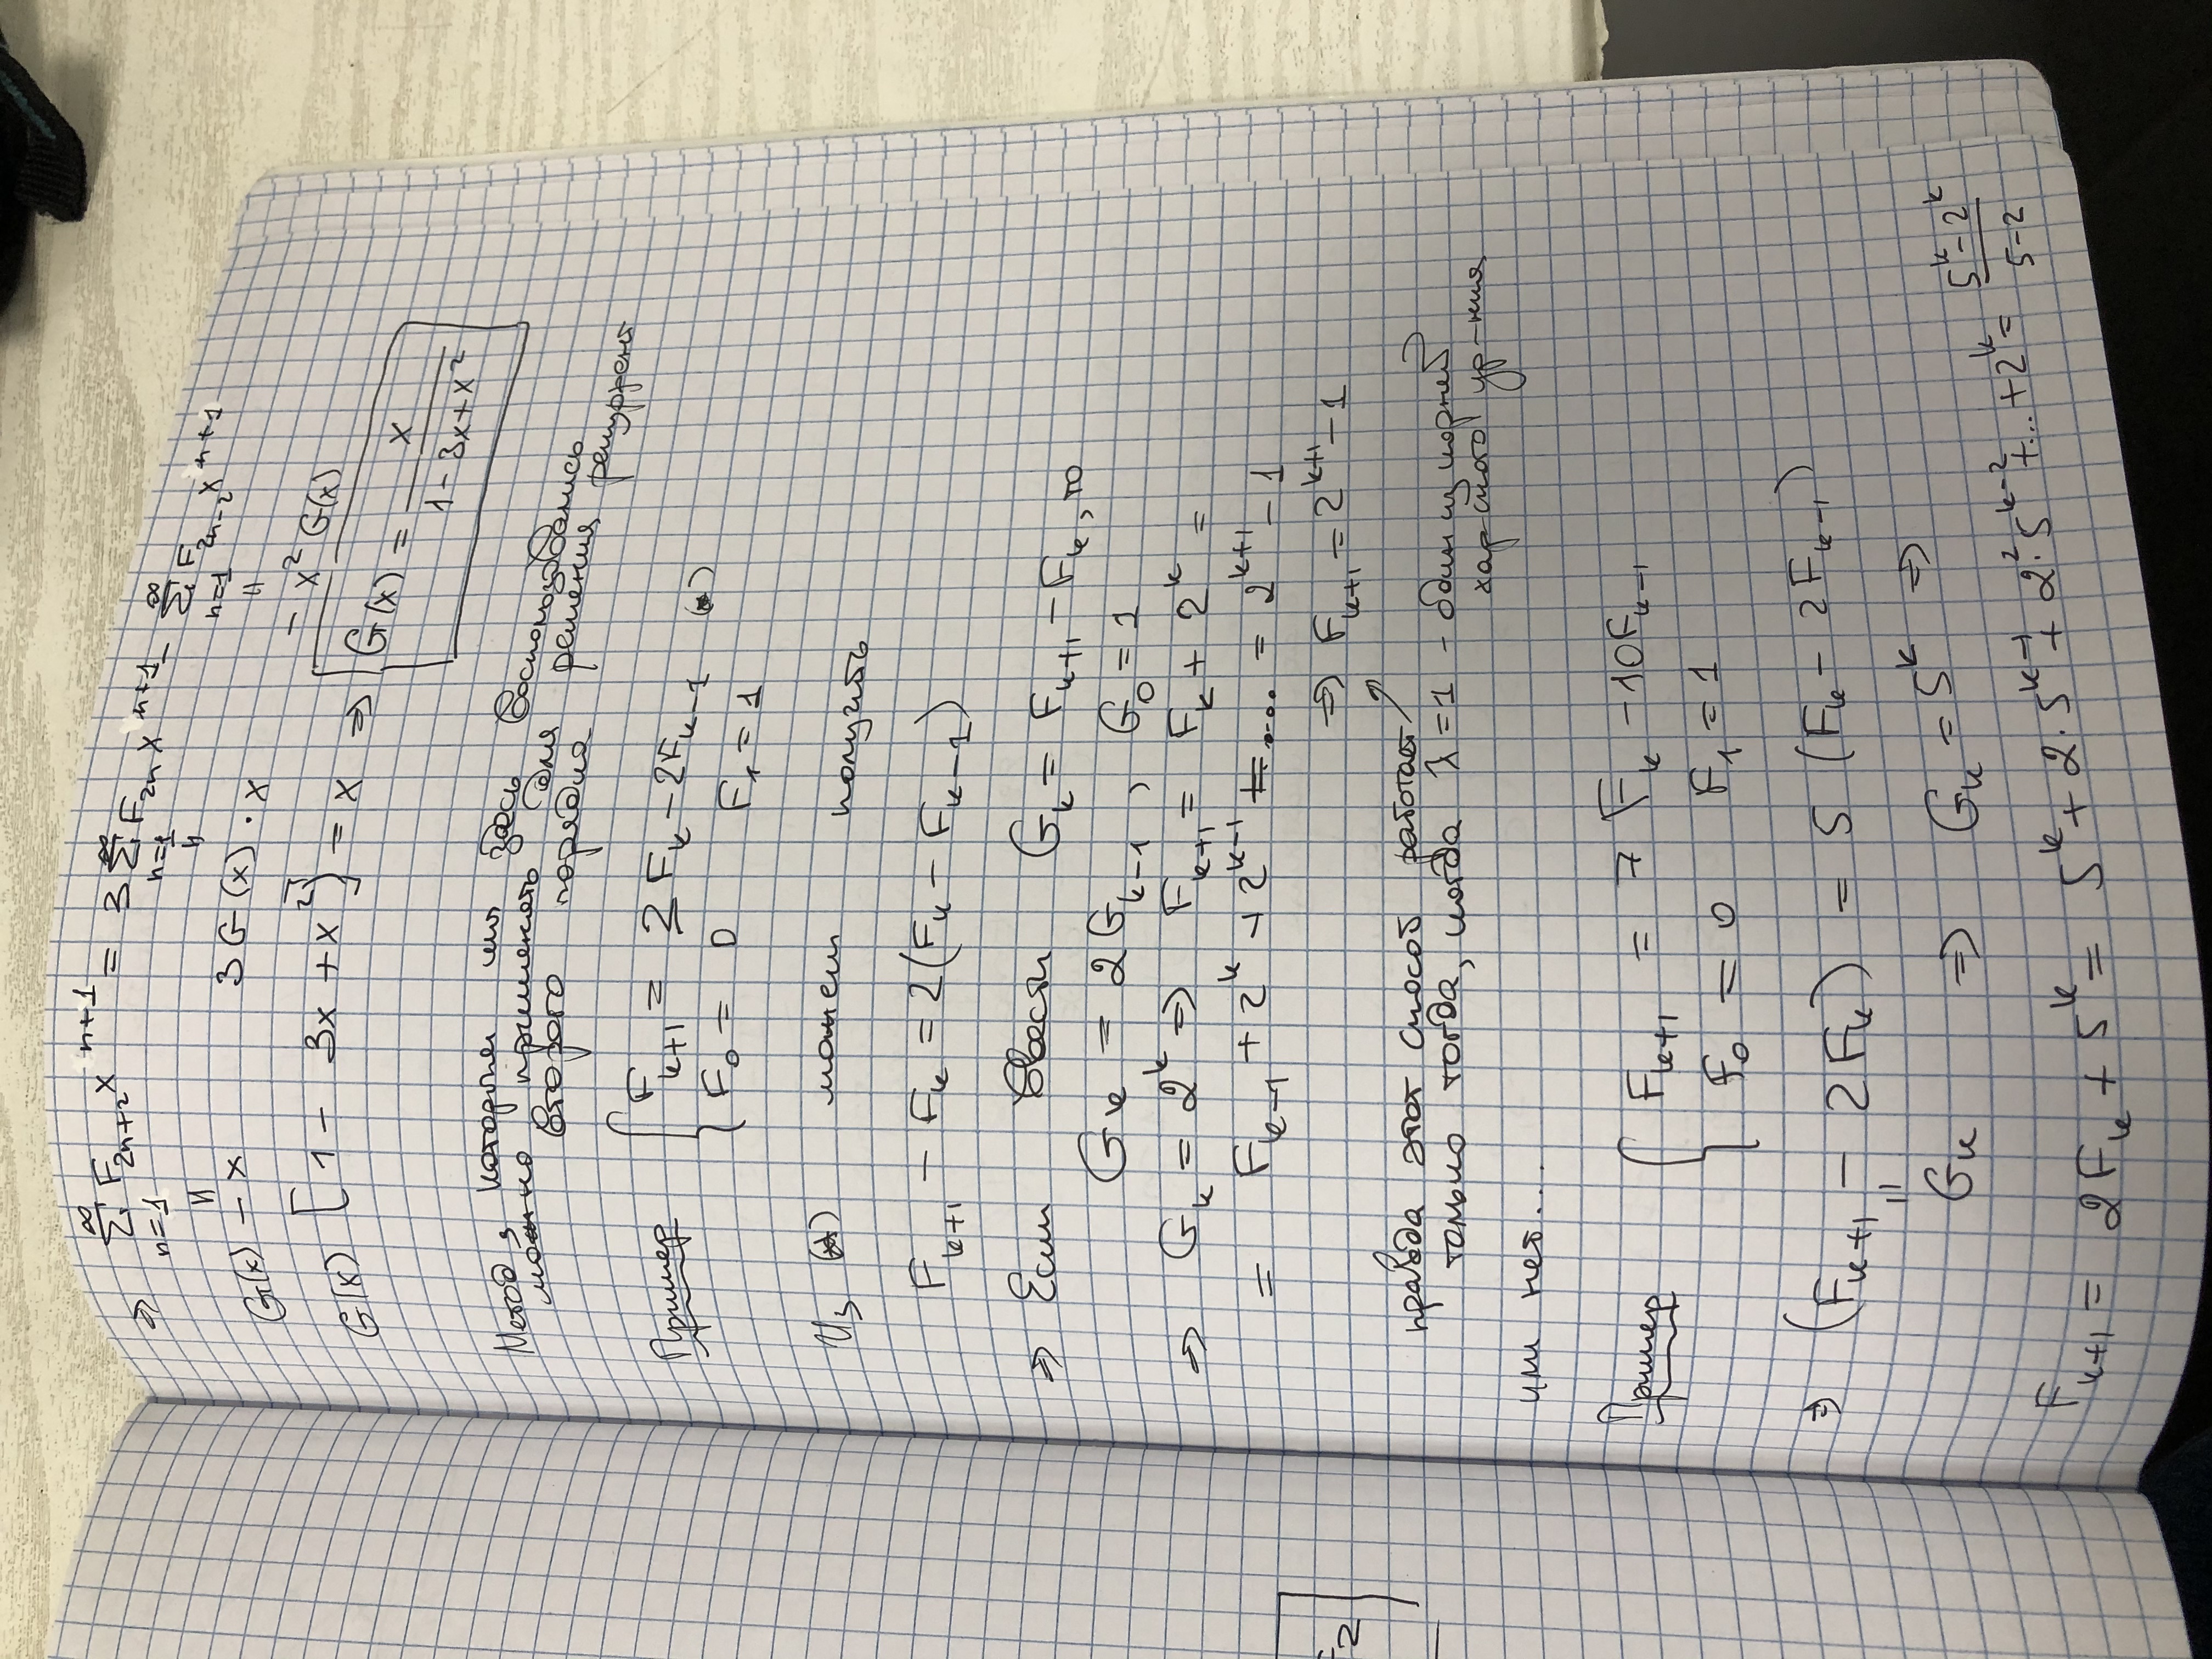 ⇒ ∑_{n=1}^{∞} F_{2n+2} x^{n+1} = 3 ∑_{n=1}^{∞} F_{2n} x^{n+1} - ∑_{n=1}^{∞} F_{2n-2} x^{n+1}
G(x) - x 3G(x)·x - x² G(x)
G(x) [1 - 3x + x²] = x ⇒ G(x) = x / (1 - 3x + x²)
Метод, которым мы здесь воспользовались
можно применять для решения рекуррент
второго порядка
Пример { F_{k+1} = 2F_k - 2F_{k-1} (*)
F_0 = 0 F_1 = 1
Из (*) можем получить
F_{k+1} - F_k = 2(F_k - F_{k-1})
⇒ Если ввести G_k = F_{k+1} - F_k, то
G_k = 2G_{k-1}, G_0 = 1
⇒ G_k = 2^k ⇒ F_{k+1} = F_k + 2^k =
= F_{k-1} + 2^k + 2^{k-1} + .... = 2^{k+1} - 1
⇒ F_{k+1} = 2^{k+1} - 1
правда этот способ работает
только тогда, когда λ = 1 - один из корней
хар-ского ур-ния
или нет...
Пример { F_{k+1} = 7F_k - 10F_{k-1}
F_0 = 0 F_1 = 1
⇒ (F_{k+1} - 2F_k) = 5 (F_k - 2F_{k-1})
G_k ⇒ G_k = 5^k ⇒
F_{k+1} = 2F_k + 5^k = 5^k + 2·5^{k-1} + 2²·5^{k-2} + ... + 2^k = (5^k - 2^k) / (5-2)
F_2